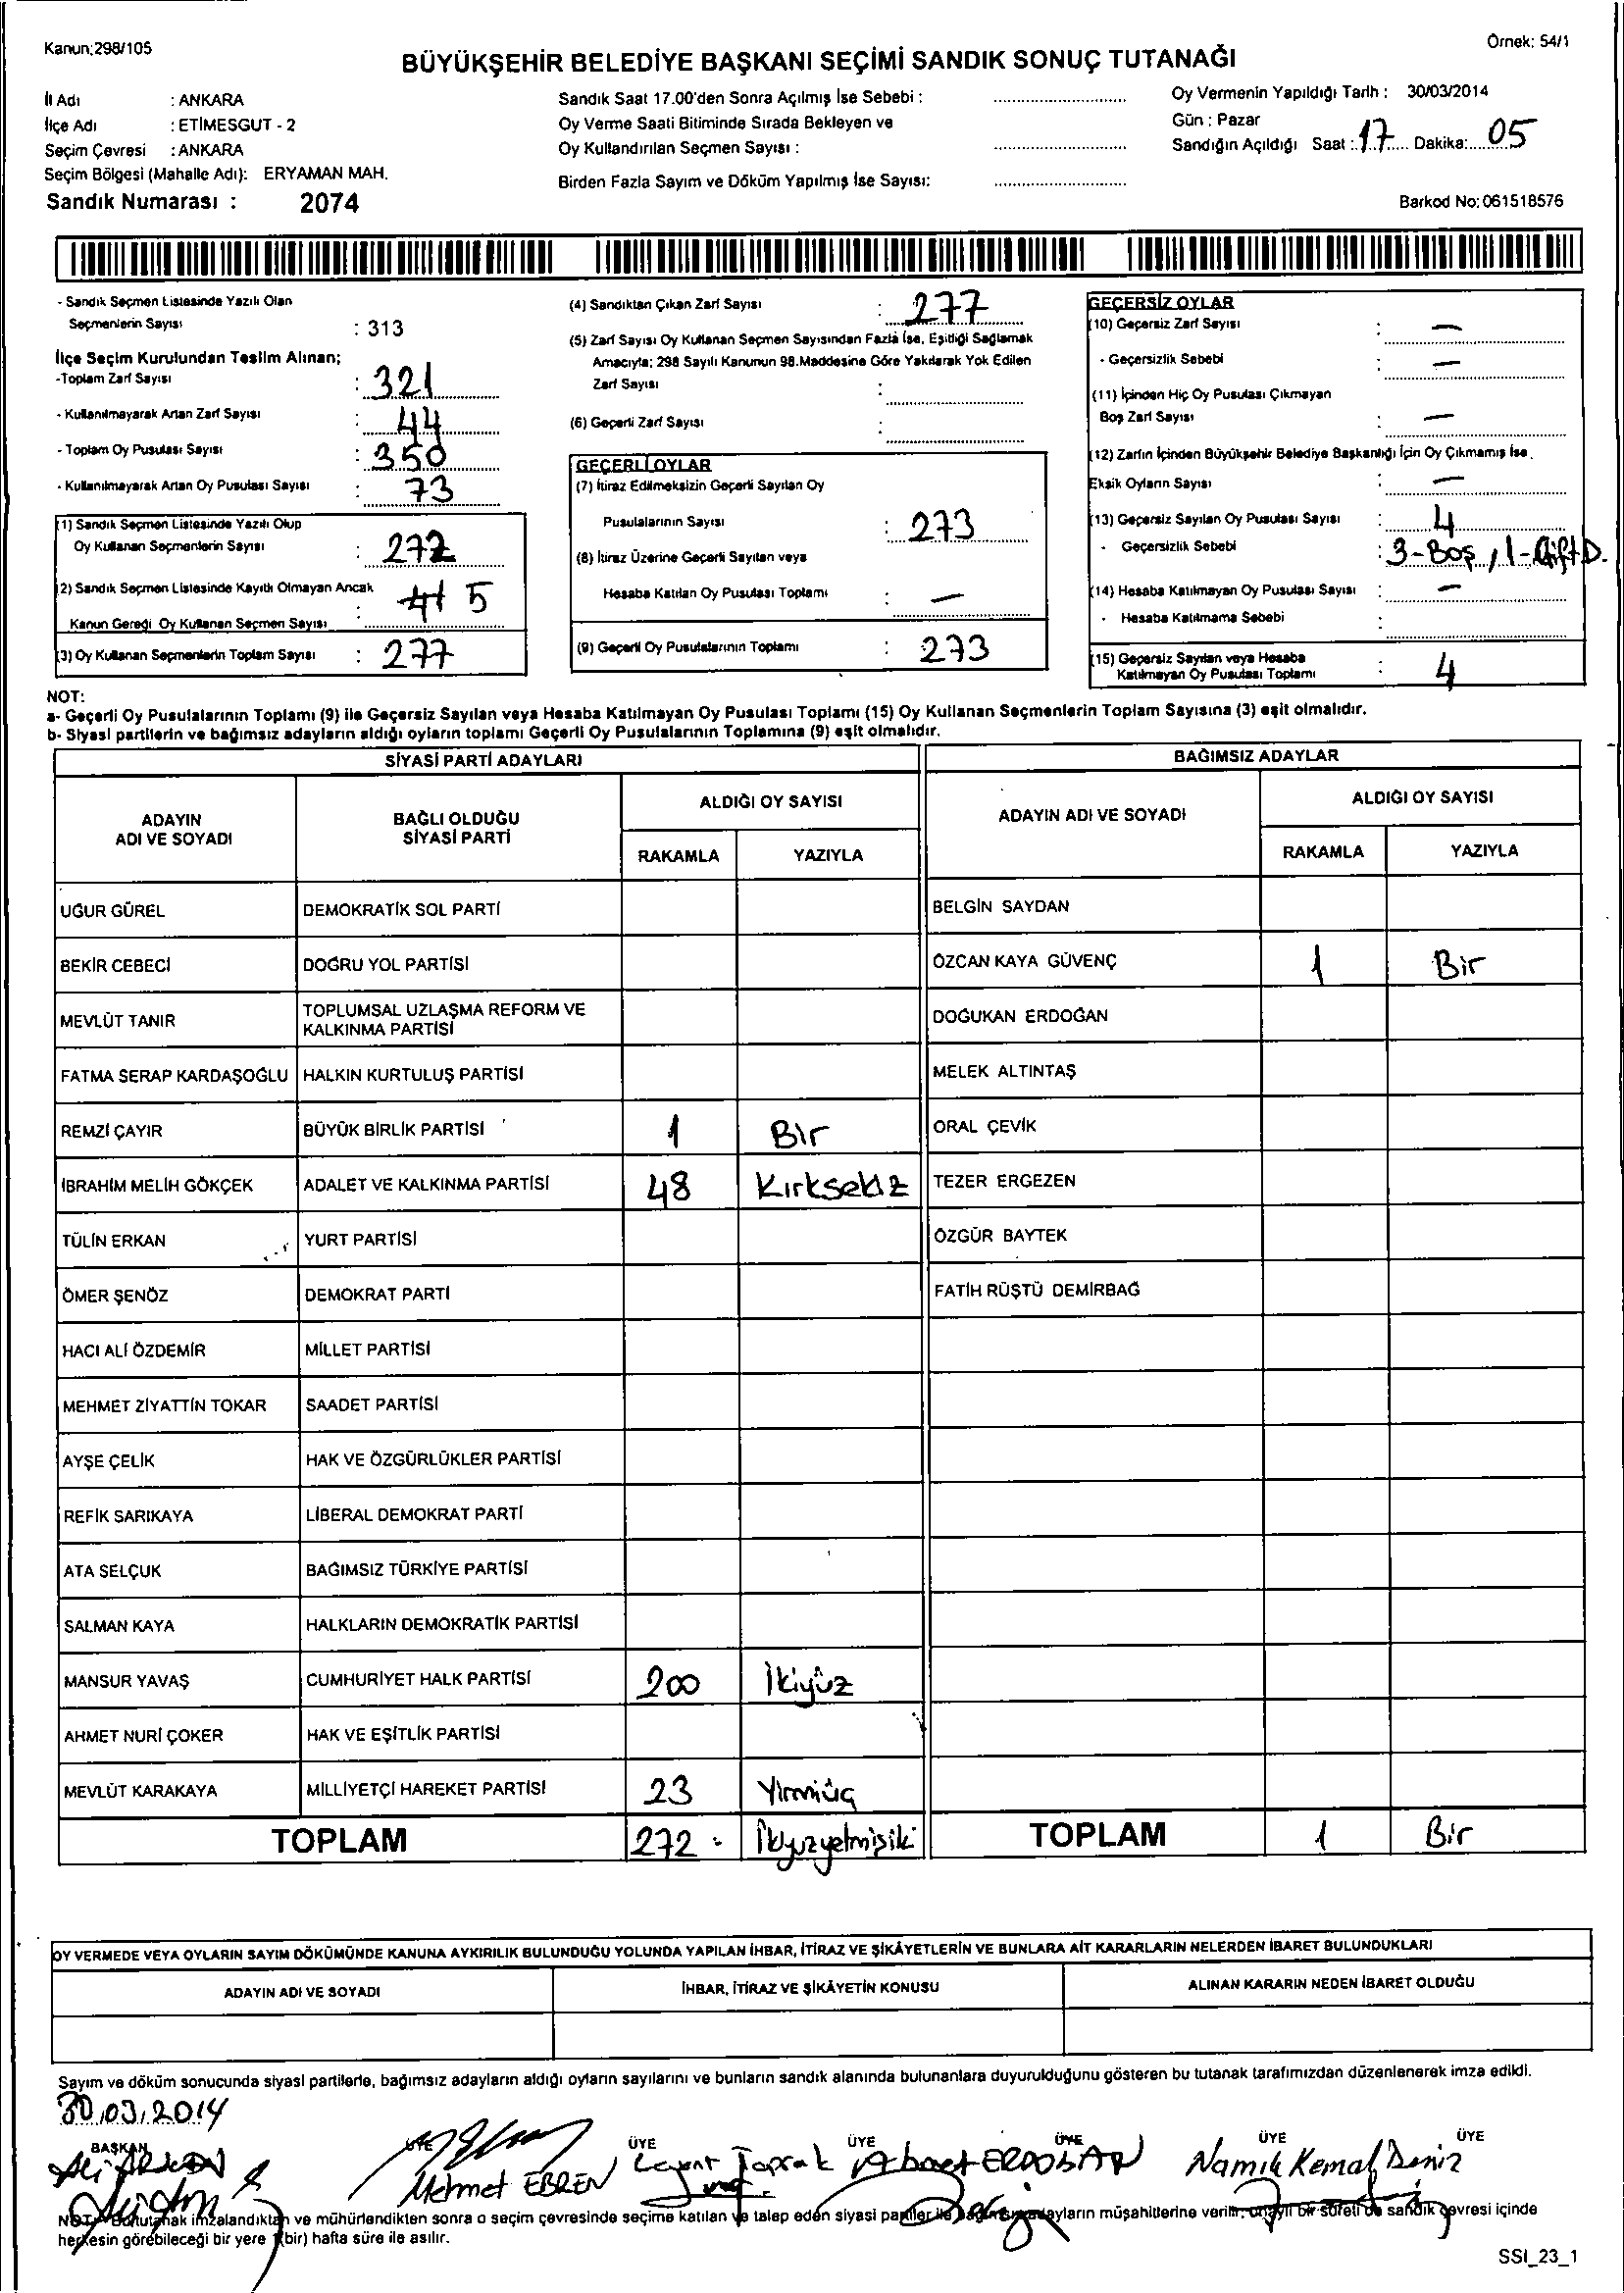 Kanun:298/105
Örnek: 54/1
BÜYÜKŞEHİR BELEDİYE BAŞKANI SEÇİMİ SANDIK SONUÇ TUTANAĞI
İl Adı : ANKARA
İlçe Adı : ETİMESGUT - 2
Seçim Çevresi : ANKARA
Seçim Bölgesi (Mahalle Adı): ERYAMAN MAH.
Sandık Numarası : 2074
Sandık Saat 17.00'den Sonra Açılmış İse Sebebi :
Oy Verme Saati Bitiminde Sırada Bekleyen ve
Oy Kullandırılan Seçmen Sayısı :
Birden Fazla Sayım ve Döküm Yapılmış İse Sayısı:
Oy Vermenin Yapıldığı Tarih : 30/03/2014
Gün : Pazar
Sandığın Açıldığı Saat : 17 Dakika: 05
Barkod No: 061518576
- Sandık Seçmen Listesinde Yazılı Olan
Seçmenlerin Sayısı : 313
İlçe Seçim Kurulundan Teslim Alınan;
-Toplam Zarf Sayısı : 321
- Kullanılmayarak Artan Zarf Sayısı : 44
- Toplam Oy Pusulası Sayısı : 350
- Kullanılmayarak Artan Oy Pusulası Sayısı : 73
(1) Sandık Seçmen Listesinde Yazılı Olup
Oy Kullanan Seçmenlerin Sayısı : 272
(2) Sandık Seçmen Listesinde Kayıtlı Olmayan Ancak
Kanun Gereği Oy Kullanan Seçmen Sayısı : 5
(3) Oy Kullanan Seçmenlerin Toplam Sayısı : 277
(4) Sandıktan Çıkan Zarf Sayısı : 277
(5) Zarf Sayısı Oy Kullanan Seçmen Sayısından Fazla İse, Eşitliği Sağlamak
Amacıyla; 298 Sayılı Kanunun 98.Maddesine Göre Yakılarak Yok Edilen
Zarf Sayısı :
(6) Geçerli Zarf Sayısı :
GEÇERLİ OYLAR
(7) İtiraz Edilmeksizin Geçerli Sayılan Oy
Pusulalarının Sayısı : 273
(8) İtiraz Üzerine Geçerli Sayılan veya
Hesaba Katılan Oy Pusulası Toplamı : —
(9) Geçerli Oy Pusulalarının Toplamı : 273
GEÇERSİZ OYLAR
(10) Geçersiz Zarf Sayısı : —
- Geçersizlik Sebebi : —
(11) İçinden Hiç Oy Pusulası Çıkmayan
Boş Zarf Sayısı : —
(12) Zarfın İçinden Büyükşehir Belediye Başkanlığı İçin Oy Çıkmamış İse,
Eksik Oyların Sayısı : —
(13) Geçersiz Sayılan Oy Pusulası Sayısı : 4
- Geçersizlik Sebebi : 3-Boş, 1-Çift D.
(14) Hesaba Katılmayan Oy Pusulası Sayısı : —
- Hesaba Katılmama Sebebi :
(15) Geçersiz Sayılan veya Hesaba
Katılmayan Oy Pusulası Toplamı : 4
NOT:
a- Geçerli Oy Pusulalarının Toplamı (9) ile Geçersiz Sayılan veya Hesaba Katılmayan Oy Pusulası Toplamı (15) Oy Kullanan Seçmenlerin Toplam Sayısına (3) eşit olmalıdır.
b- Siyasi partilerin ve bağımsız adayların aldığı oyların toplamı Geçerli Oy Pusulalarının Toplamına (9) eşit olmalıdır.
SİYASİ PARTİ ADAYLARI
BAĞIMSIZ ADAYLAR
ADAYIN ADI VE SOYADI
BAĞLI OLDUĞU SİYASİ PARTİ
ALDIĞI OY SAYISI
RAKAMLA YAZIYLA
ADAYIN ADI VE SOYADI
ALDIĞI OY SAYISI
RAKAMLA YAZIYLA
UĞUR GÜREL DEMOKRATİK SOL PARTİ BELGİN SAYDAN
BEKİR CEBECİ DOĞRU YOL PARTİSİ ÖZCAN KAYA GÜVENÇ 1 Bir
MEVLÜT TANIR TOPLUMSAL UZLAŞMA REFORM VE KALKINMA PARTİSİ DOĞUKAN ERDOĞAN
FATMA SERAP KARDAŞOĞLU HALKIN KURTULUŞ PARTİSİ MELEK ALTINTAŞ
REMZİ ÇAYIR BÜYÜK BİRLİK PARTİSİ 1 Bir ORAL ÇEVİK
İBRAHİM MELİH GÖKÇEK ADALET VE KALKINMA PARTİSİ 48 Kırksekiz TEZER ERGEZEN
TÜLİN ERKAN YURT PARTİSİ ÖZGÜR BAYTEK
ÖMER ŞENÖZ DEMOKRAT PARTİ FATİH RÜŞTÜ DEMİRBAĞ
HACI ALİ ÖZDEMİR MİLLET PARTİSİ
MEHMET ZİYATTİN TOKAR SAADET PARTİSİ
AYŞE ÇELİK HAK VE ÖZGÜRLÜKLER PARTİSİ
REFİK SARIKAYA LİBERAL DEMOKRAT PARTİ
ATA SELÇUK BAĞIMSIZ TÜRKİYE PARTİSİ
SALMAN KAYA HALKLARIN DEMOKRATİK PARTİSİ
MANSUR YAVAŞ CUMHURİYET HALK PARTİSİ 200 İkiyüz
AHMET NURİ ÇOKER HAK VE EŞİTLİK PARTİSİ
MEVLÜT KARAKAYA MİLLİYETÇİ HAREKET PARTİSİ 23 Yirmiüç
TOPLAM 272 İkiyüzyetmişiki TOPLAM 1 Bir
OY VERMEDE VEYA OYLARIN SAYIM DÖKÜMÜNDE KANUNA AYKIRILIK BULUNDUĞU YOLUNDA YAPILAN İHBAR, İTİRAZ VE ŞİKÂYETLERİN VE BUNLARA AİT KARARLARIN NELERDEN İBARET BULUNDUKLARI
ADAYIN ADI VE SOYADI İHBAR, İTİRAZ VE ŞİKÂYETİN KONUSU ALINAN KARARIN NEDEN İBARET OLDUĞU
Sayım ve döküm sonucunda siyasi partilerle, bağımsız adayların aldığı oyların sayılarını ve bunların sandık alanında bulunanlara duyurulduğunu gösteren bu tutanak tarafımızdan düzenlenerek imza edildi.
30.03.2014
BAŞKAN ÜYE ÜYE ÜYE ÜYE ÜYE ÜYE
Mehmet EBREN Levent Toprak Ahmet ERDOĞAN Namık Kemal Deniz
NOT: Bu tutanak imzalandıktan ve mühürlendikten sonra o seçim çevresinde seçime katılan ve talep eden siyasi partiler ile bağımsız adayların müşahitlerine verilir, onaylı bir sureti de sandık çevresi içinde
herkesin görebileceği bir yere 1(bir) hafta süre ile asılır.
SSI_23_1